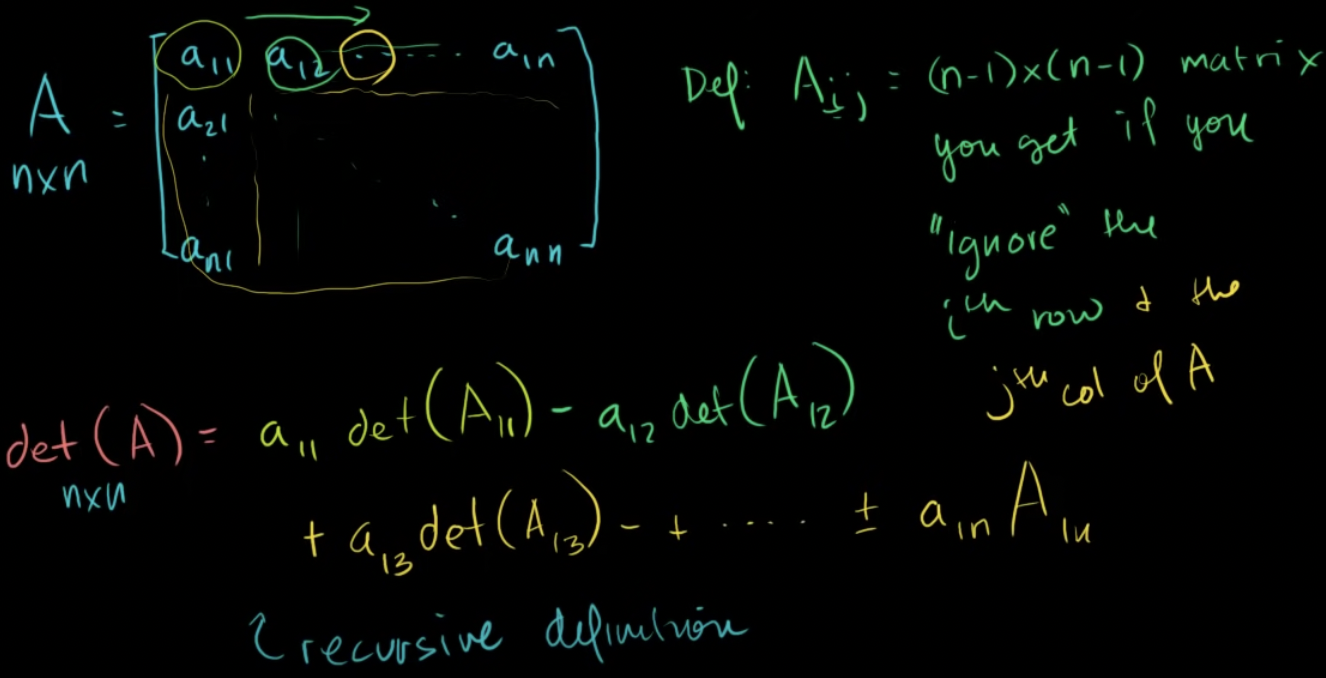 A = [ a₁₁ a₁₂ ----- ···· a₁ₙ ]
n×n
a₂₁
aₙ₁ aₙₙ
Def: Aᵢⱼ = (n-1)×(n-1) matrix
you get if you
"ignore" the
iᵗʰ row & the
jᵗʰ col of A
det(A) = a₁₁ det(A₁₁) - a₁₂ det(A₁₂)
n×n
+ a₁₃ det(A₁₃) - + ..... ± a₁ₙ A₁ₙ
recursive definition